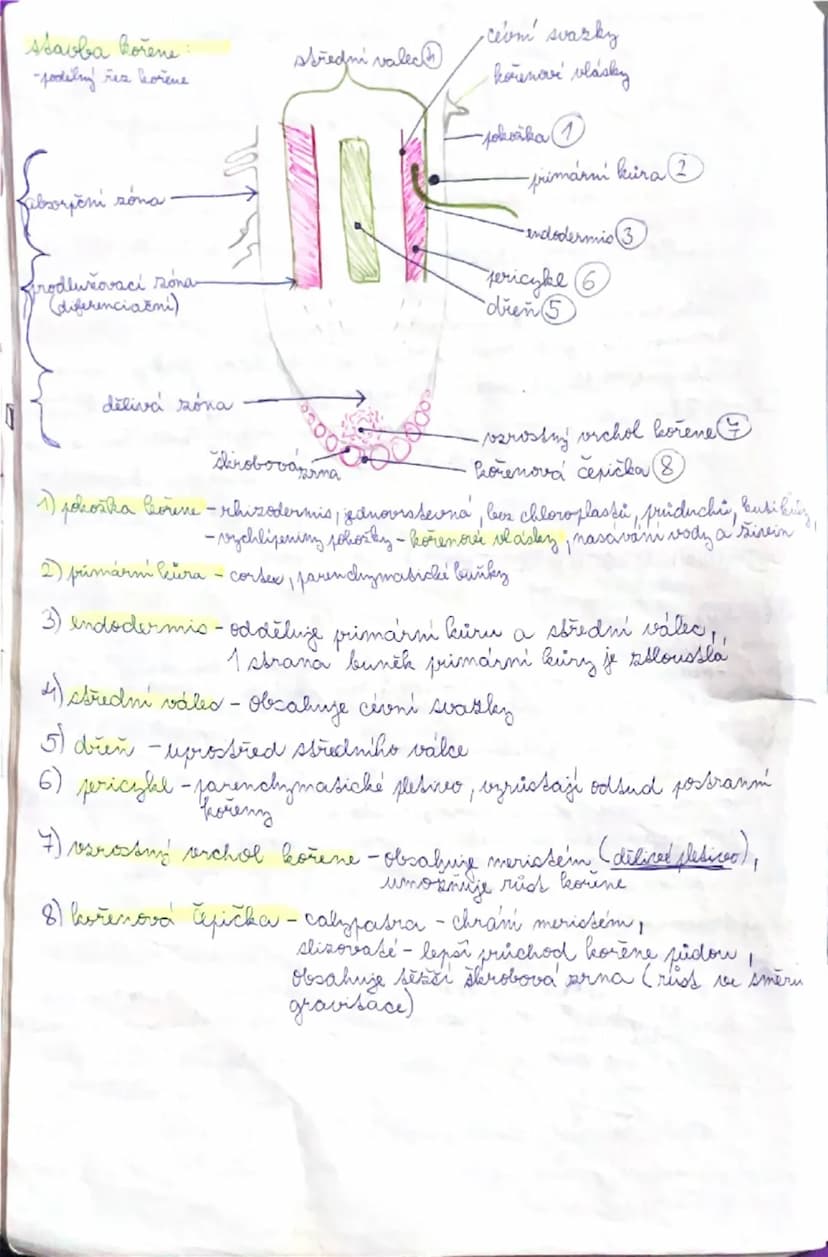 stavba kořene:
-podélný řez kořene
střední valec 4
cévní svazky
kořenové vlásky
pokožka 1
primární kůra 2
absorpční zóna
endodermis 3
prodlužovací zóna
(diferenciační)
pericykl 6
dřeň 5
dělivá zóna
vzrostný vrchol kořene 7
škrobová zrna
kořenová čepička 8
1) pokožka kořene - rhizodermis, jednovrstevná, bez chloroplastů, průduchů, kutikuly,
- vychlípeniny pokožky - kořenové vlásky, nasávání vody a živin
2) primární kůra - cortex, parenchymatické buňky
3) endodermis - odděluje primární kůru a střední válec,
1 strana buněk primární kůry je ztloustlá
4) střední válec - obsahuje cévní svazky
5) dřeň - uprostřed středního válce
6) pericykl - parenchymatické pletivo, vzrůstají odtud postranní
kořeny
7) vzrostný vrchol kořene - obsahuje meristém (dělivé pletivo),
umožňuje růst kořene
8) kořenová čepička - calyptra - chrání meristém,
slizovaté - lepší průchod kořene půdou,
obsahuje těžší škrobová zrna (růst ve směru
gravitace)